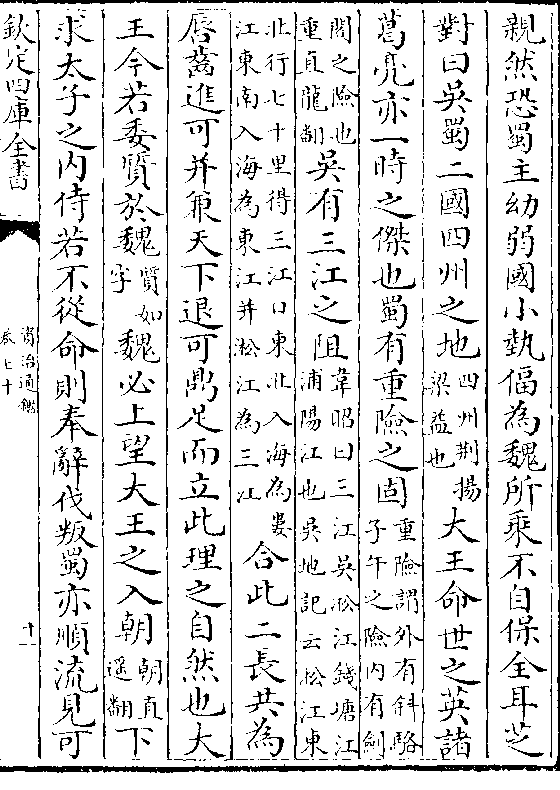 親然恐蜀主幼弱國小埶偪為魏所乘不自保全耳芝
對曰吳蜀二國四州之地四州荆揚梁益也大王命世之英諸
葛亮亦一時之傑也蜀有重險之固重險謂外有斜駱子午之險内有劍
閣之險也重直龍翻吳有三江之阻韋昭曰三江吳淞江錢塘江浦陽江也吳地記云松江東
北行七十里得三江口東北入海為婁江東南入海為東江并淞江為三江合此二長共為
唇齒進可并兼天下退可鼎足而立此理之自然也大
王今若委質於魏質如字魏必上望大王之入朝朝直遥翻下
求太子之内侍若不從命則奉辭伐叛蜀亦順流見可
欽定四庫全書
資治通鑑
卷七十
十一